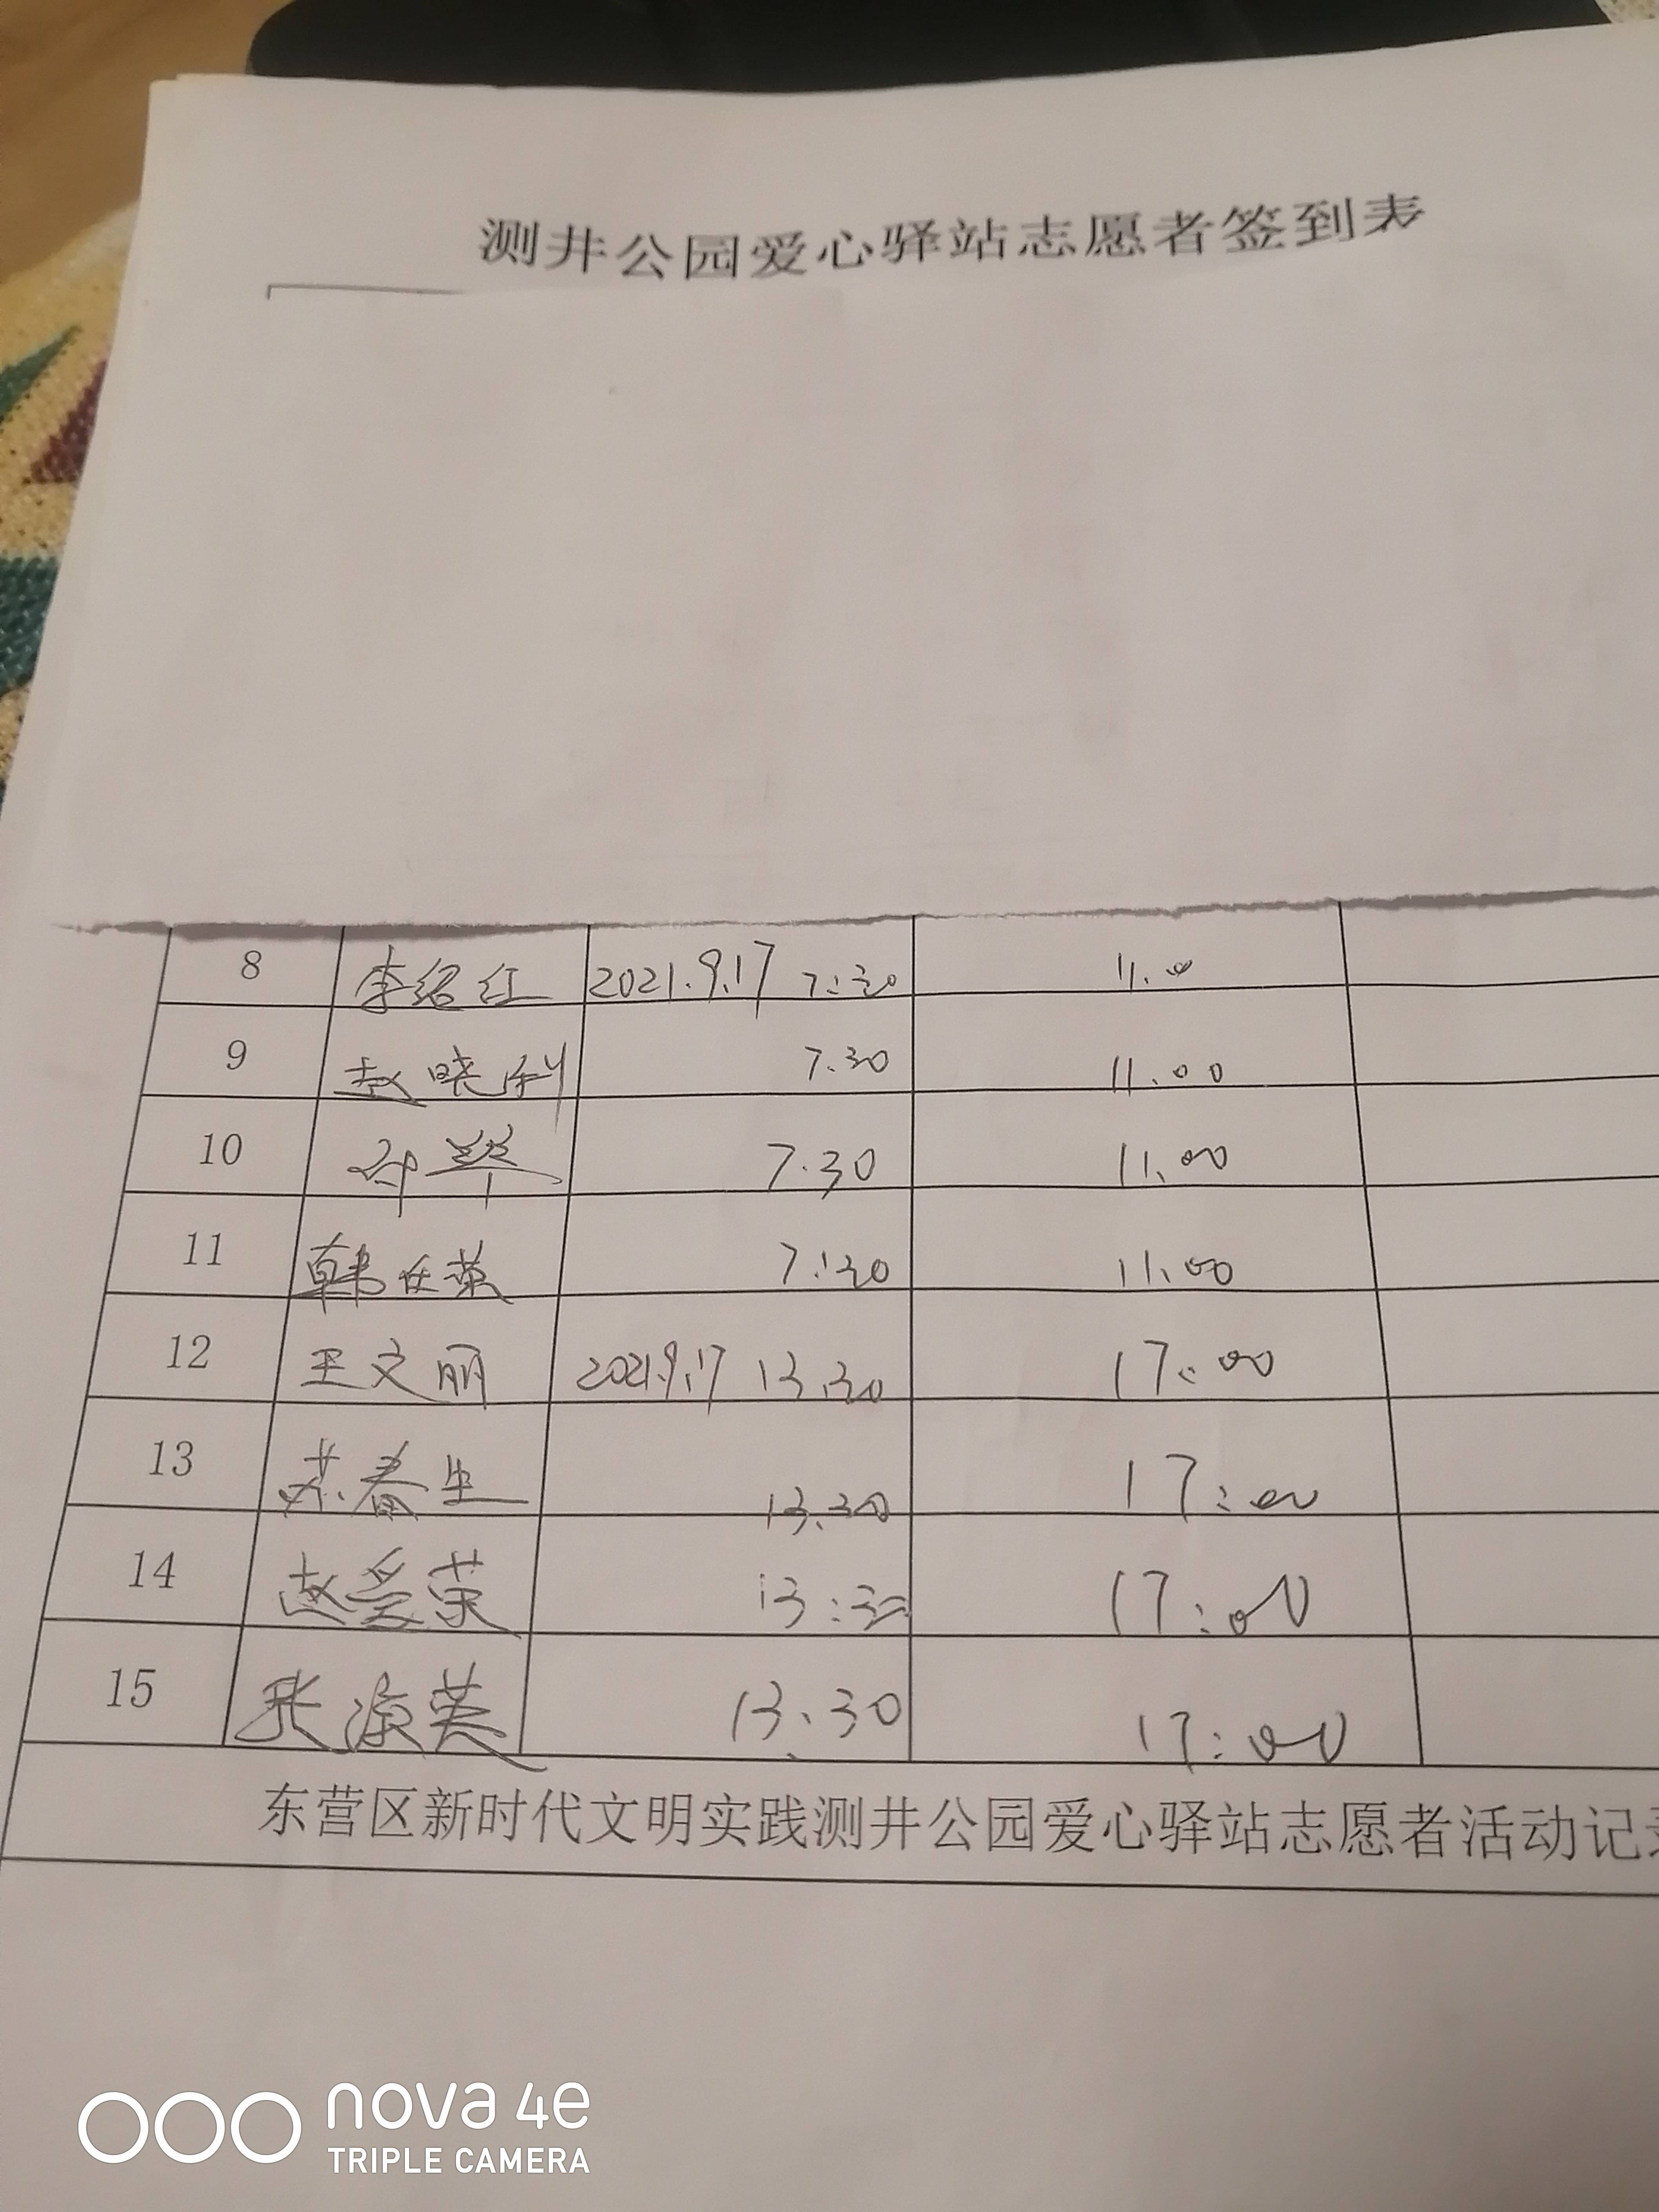 测井公园爱心驿站志愿者签到表
8 李绍红 2021.9.17 7:30 11.0
9 赵晓利 7.30 11.00
10 7.30 11.00
11 7:30 11.00
12 王文丽 2021.9.17 13.30 17:00
13 苏春生 13.30 17:00
14 赵爱荣 13:30 17:00
15 张淑英 13.30 17:00
东营区新时代文明实践测井公园爱心驿站志愿者活动记
nova 4e
TRIPLE CAMERA